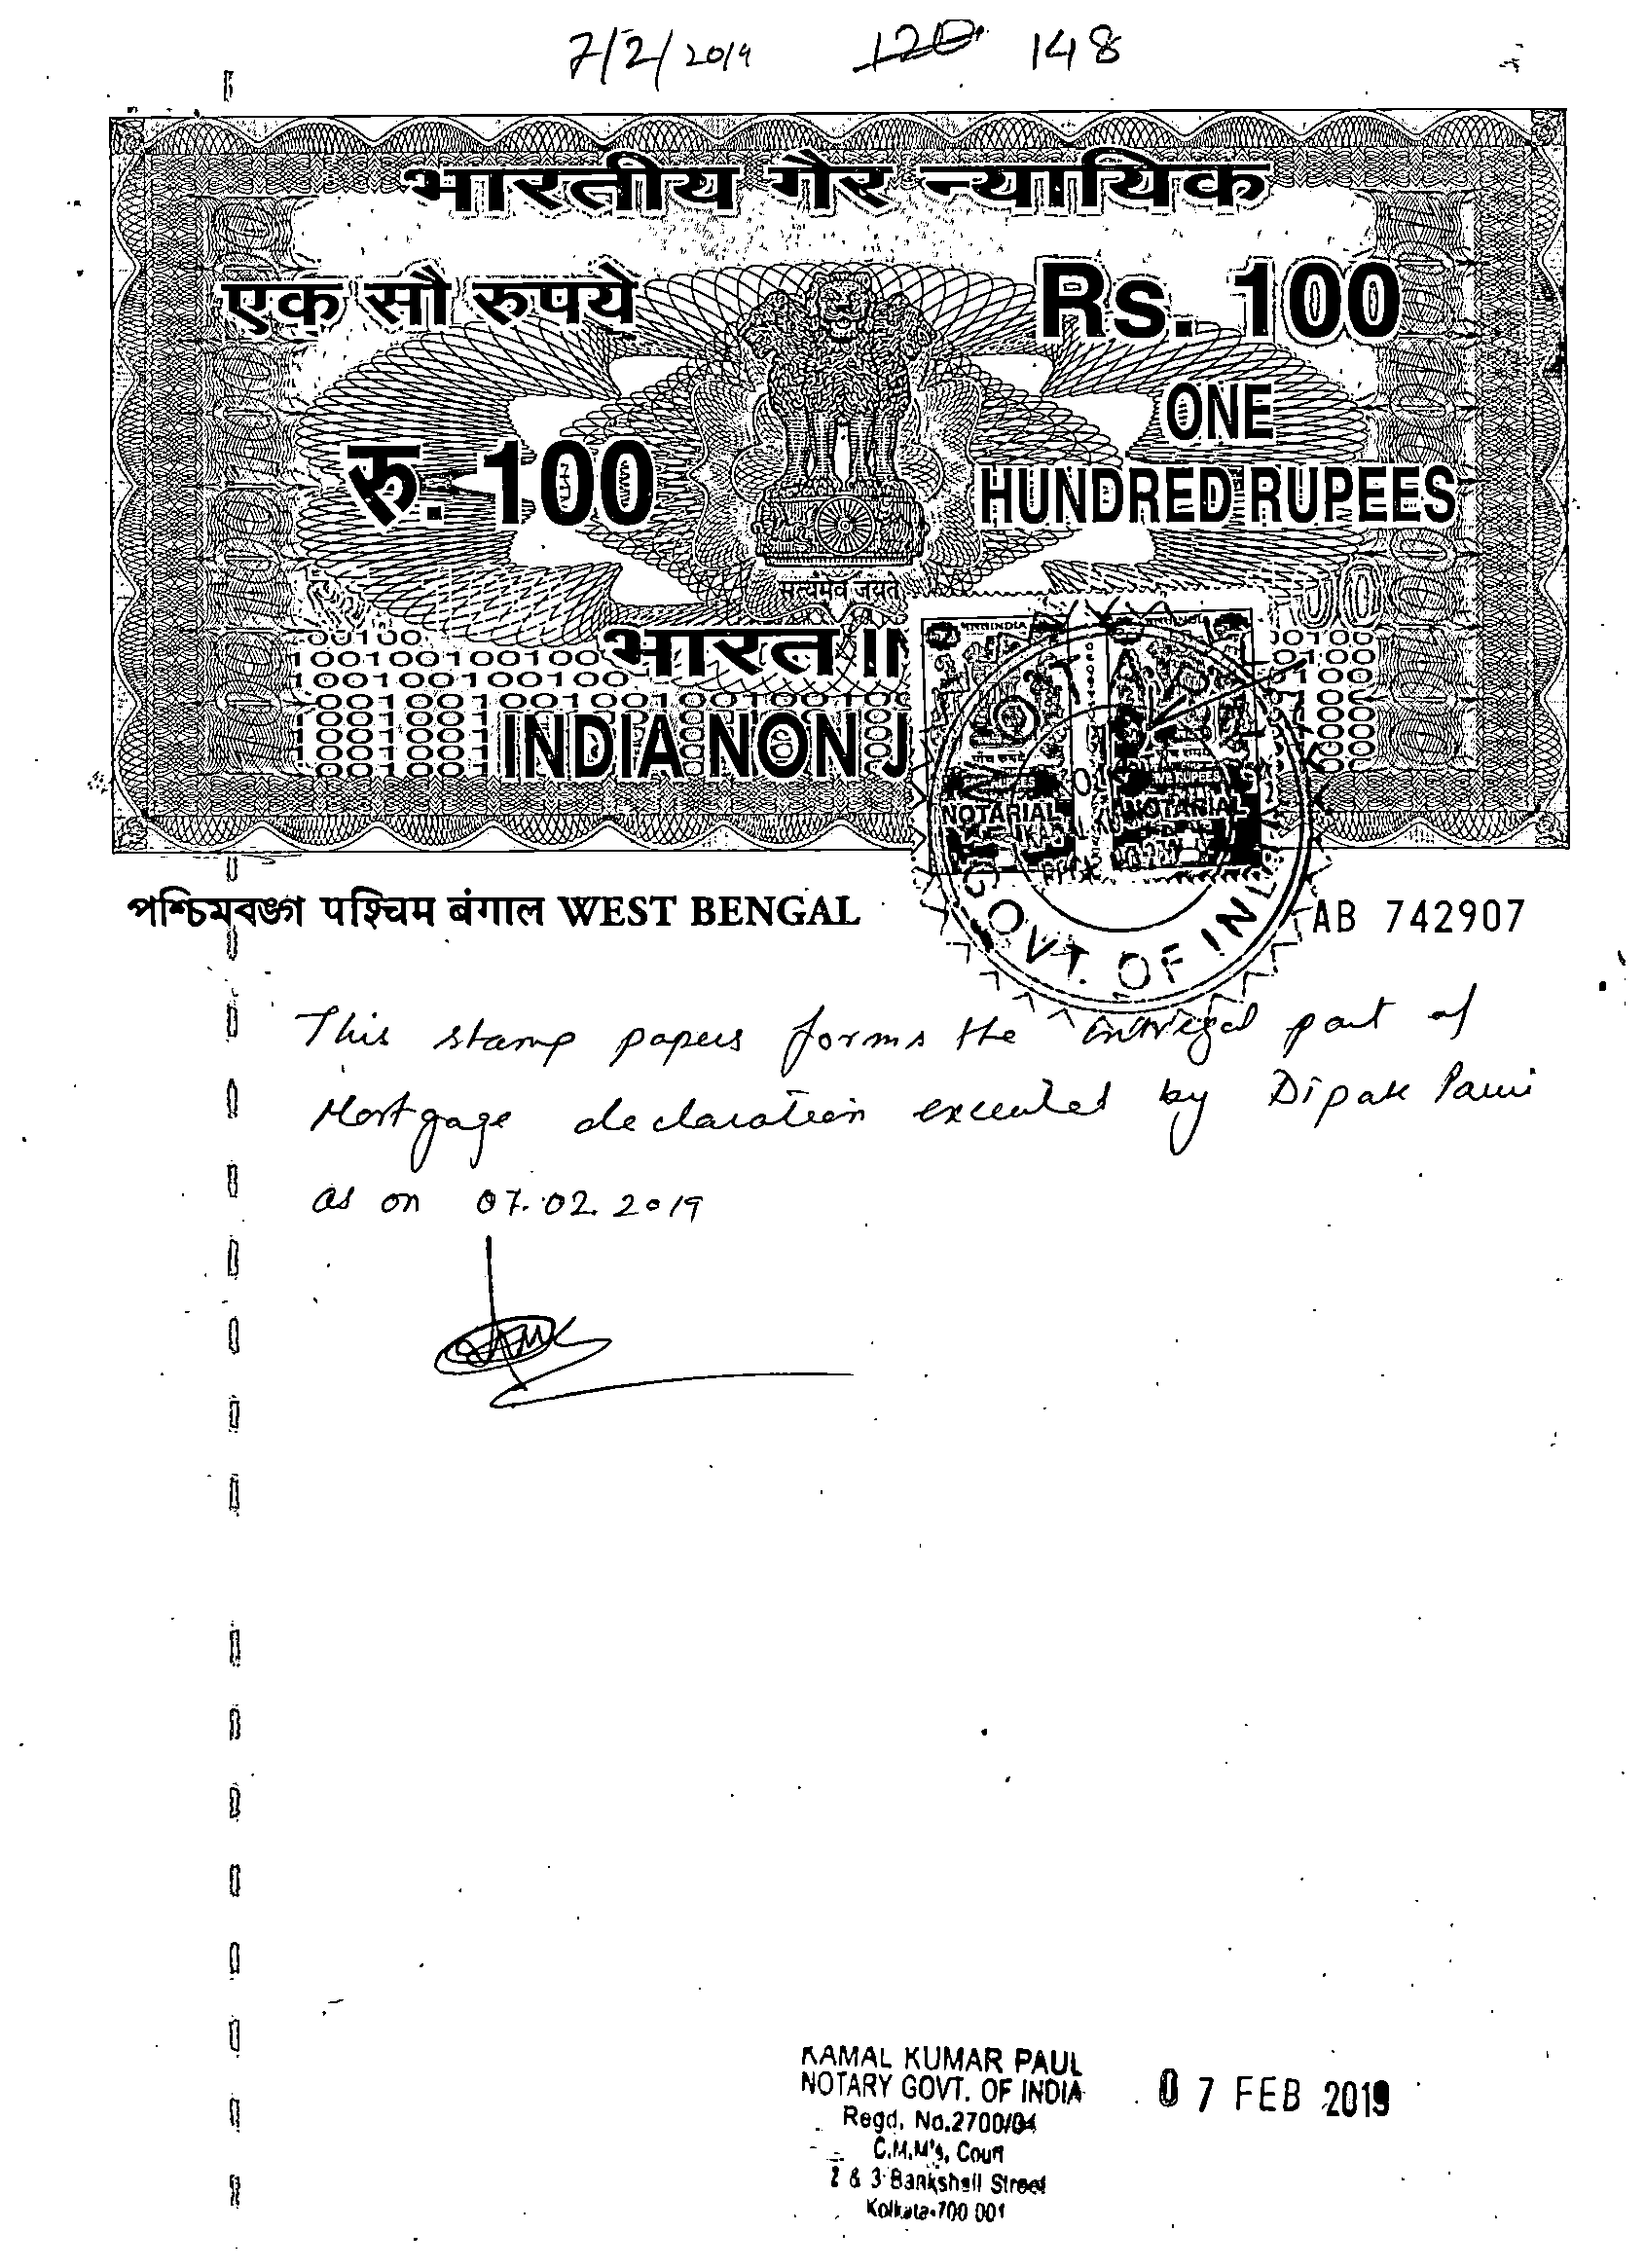 7/2/2019 120 148
भारतीय गैर न्यायिक
एक सौ रुपये
Rs. 100
रु. 100
ONE
HUNDRED RUPEES
सत्यमेव जयते
भारत
INDIA NON J
INDIA
NOTARIAL NOTARIAL
NOTARY
GOVT. OF INDIA
পশ্চিমবঙ্গ पश्चिम बंगाल WEST BENGAL
AB 742907
This stamp papers forms the intrigal part of
Mortgage declaration executed by Dipak
as on 07.02.2019
KAMAL KUMAR PAUL
NOTARY GOVT. OF INDIA
Regd. No.2700/04
C.M.M's. Court
2 & 3 Bankshall Street
Kolkata-700 001
07 FEB 2019